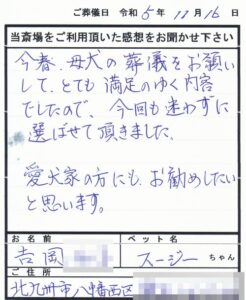 ご葬儀日 令和5年11月16日
当斎場をご利用頂いた感想をお聞かせ下さい
今春、母犬の葬儀をお願い
して、とても満足のゆく内容
でしたので、今回も迷わずに
選ばせて頂きました。
愛犬家の方にも、お勧めしたい
と思います。
お名前 ペット名
吉岡 スージー ちゃん
ご住所
北九州市八幡西区